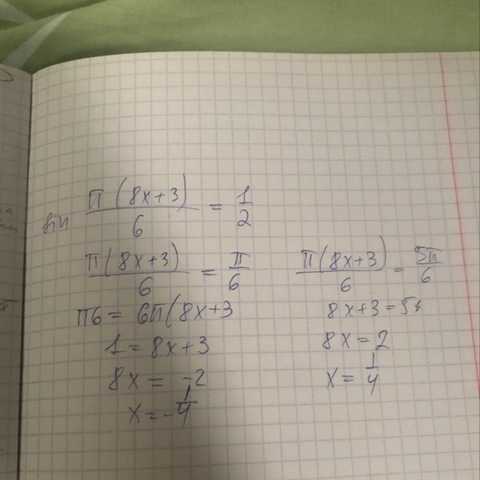 sin π(8x+3)/6 = 1/2
π(8x+3)/6 = π/6
π6 = 6π(8x+3
1 = 8x+3
8x = -2
x = -1/4
π(8x+3)/6 = 5π/6
8x+3=5
8x = 2
x = 1/4